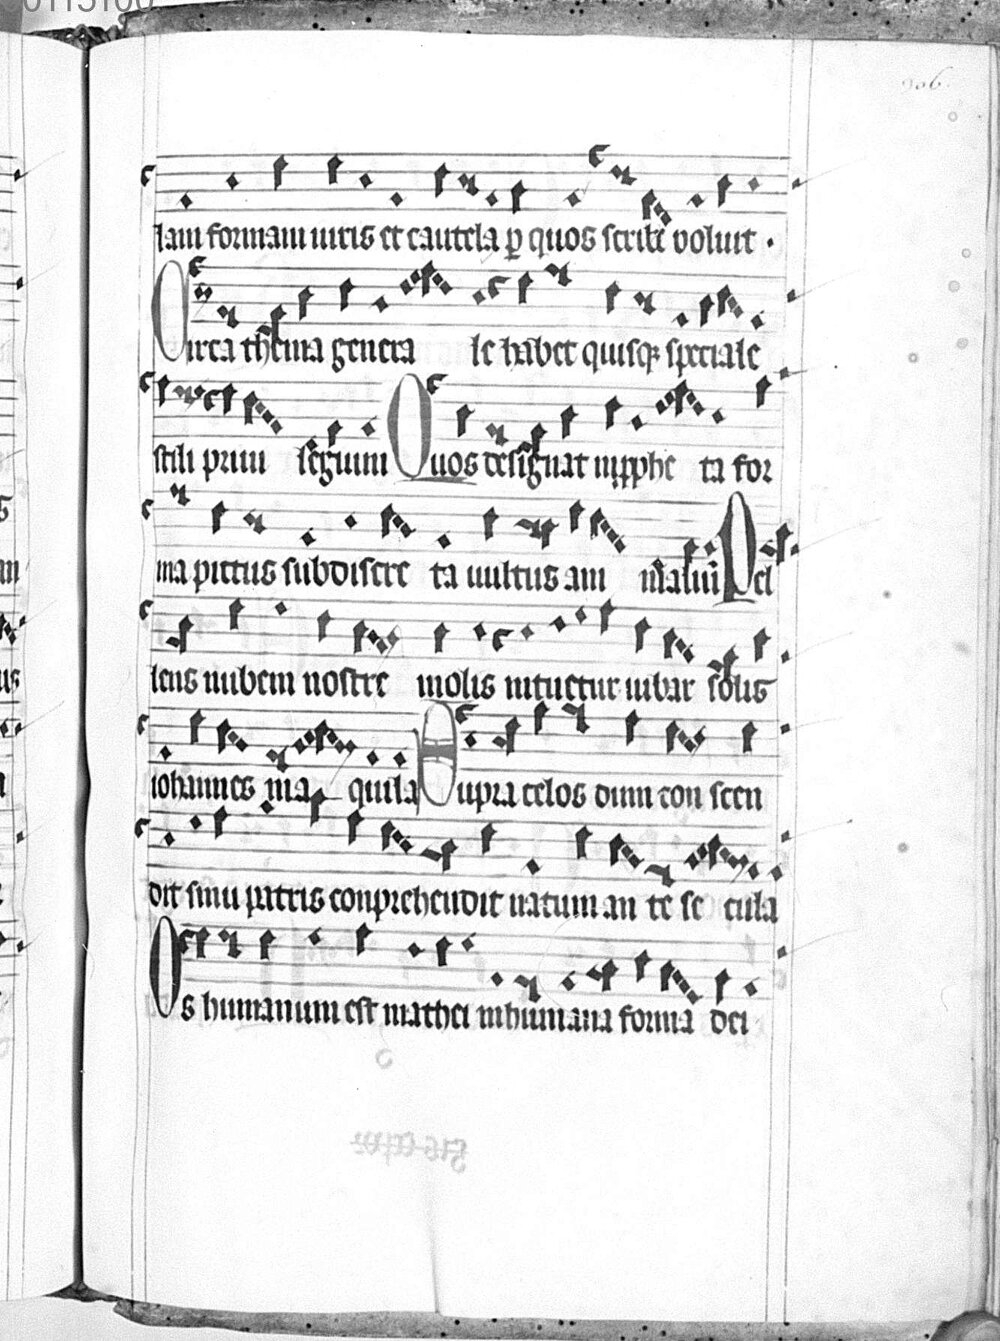 0115100
906
lam formam iuris et cautela ꝑ quos scribi voluit .
Circa thema genera le habet quisqȝ speciale
stili priui legium Quos designat in ꝓphe ta for
ma pictus sub discre ta uultus ani malium Pel
lens nubem nostre molis intuetur iubar solis
iohannes in a quila Supra celos dum con scen
dit sinu patris conprehendit natum an te se cula
Os humanum est mathei in humana forma dei